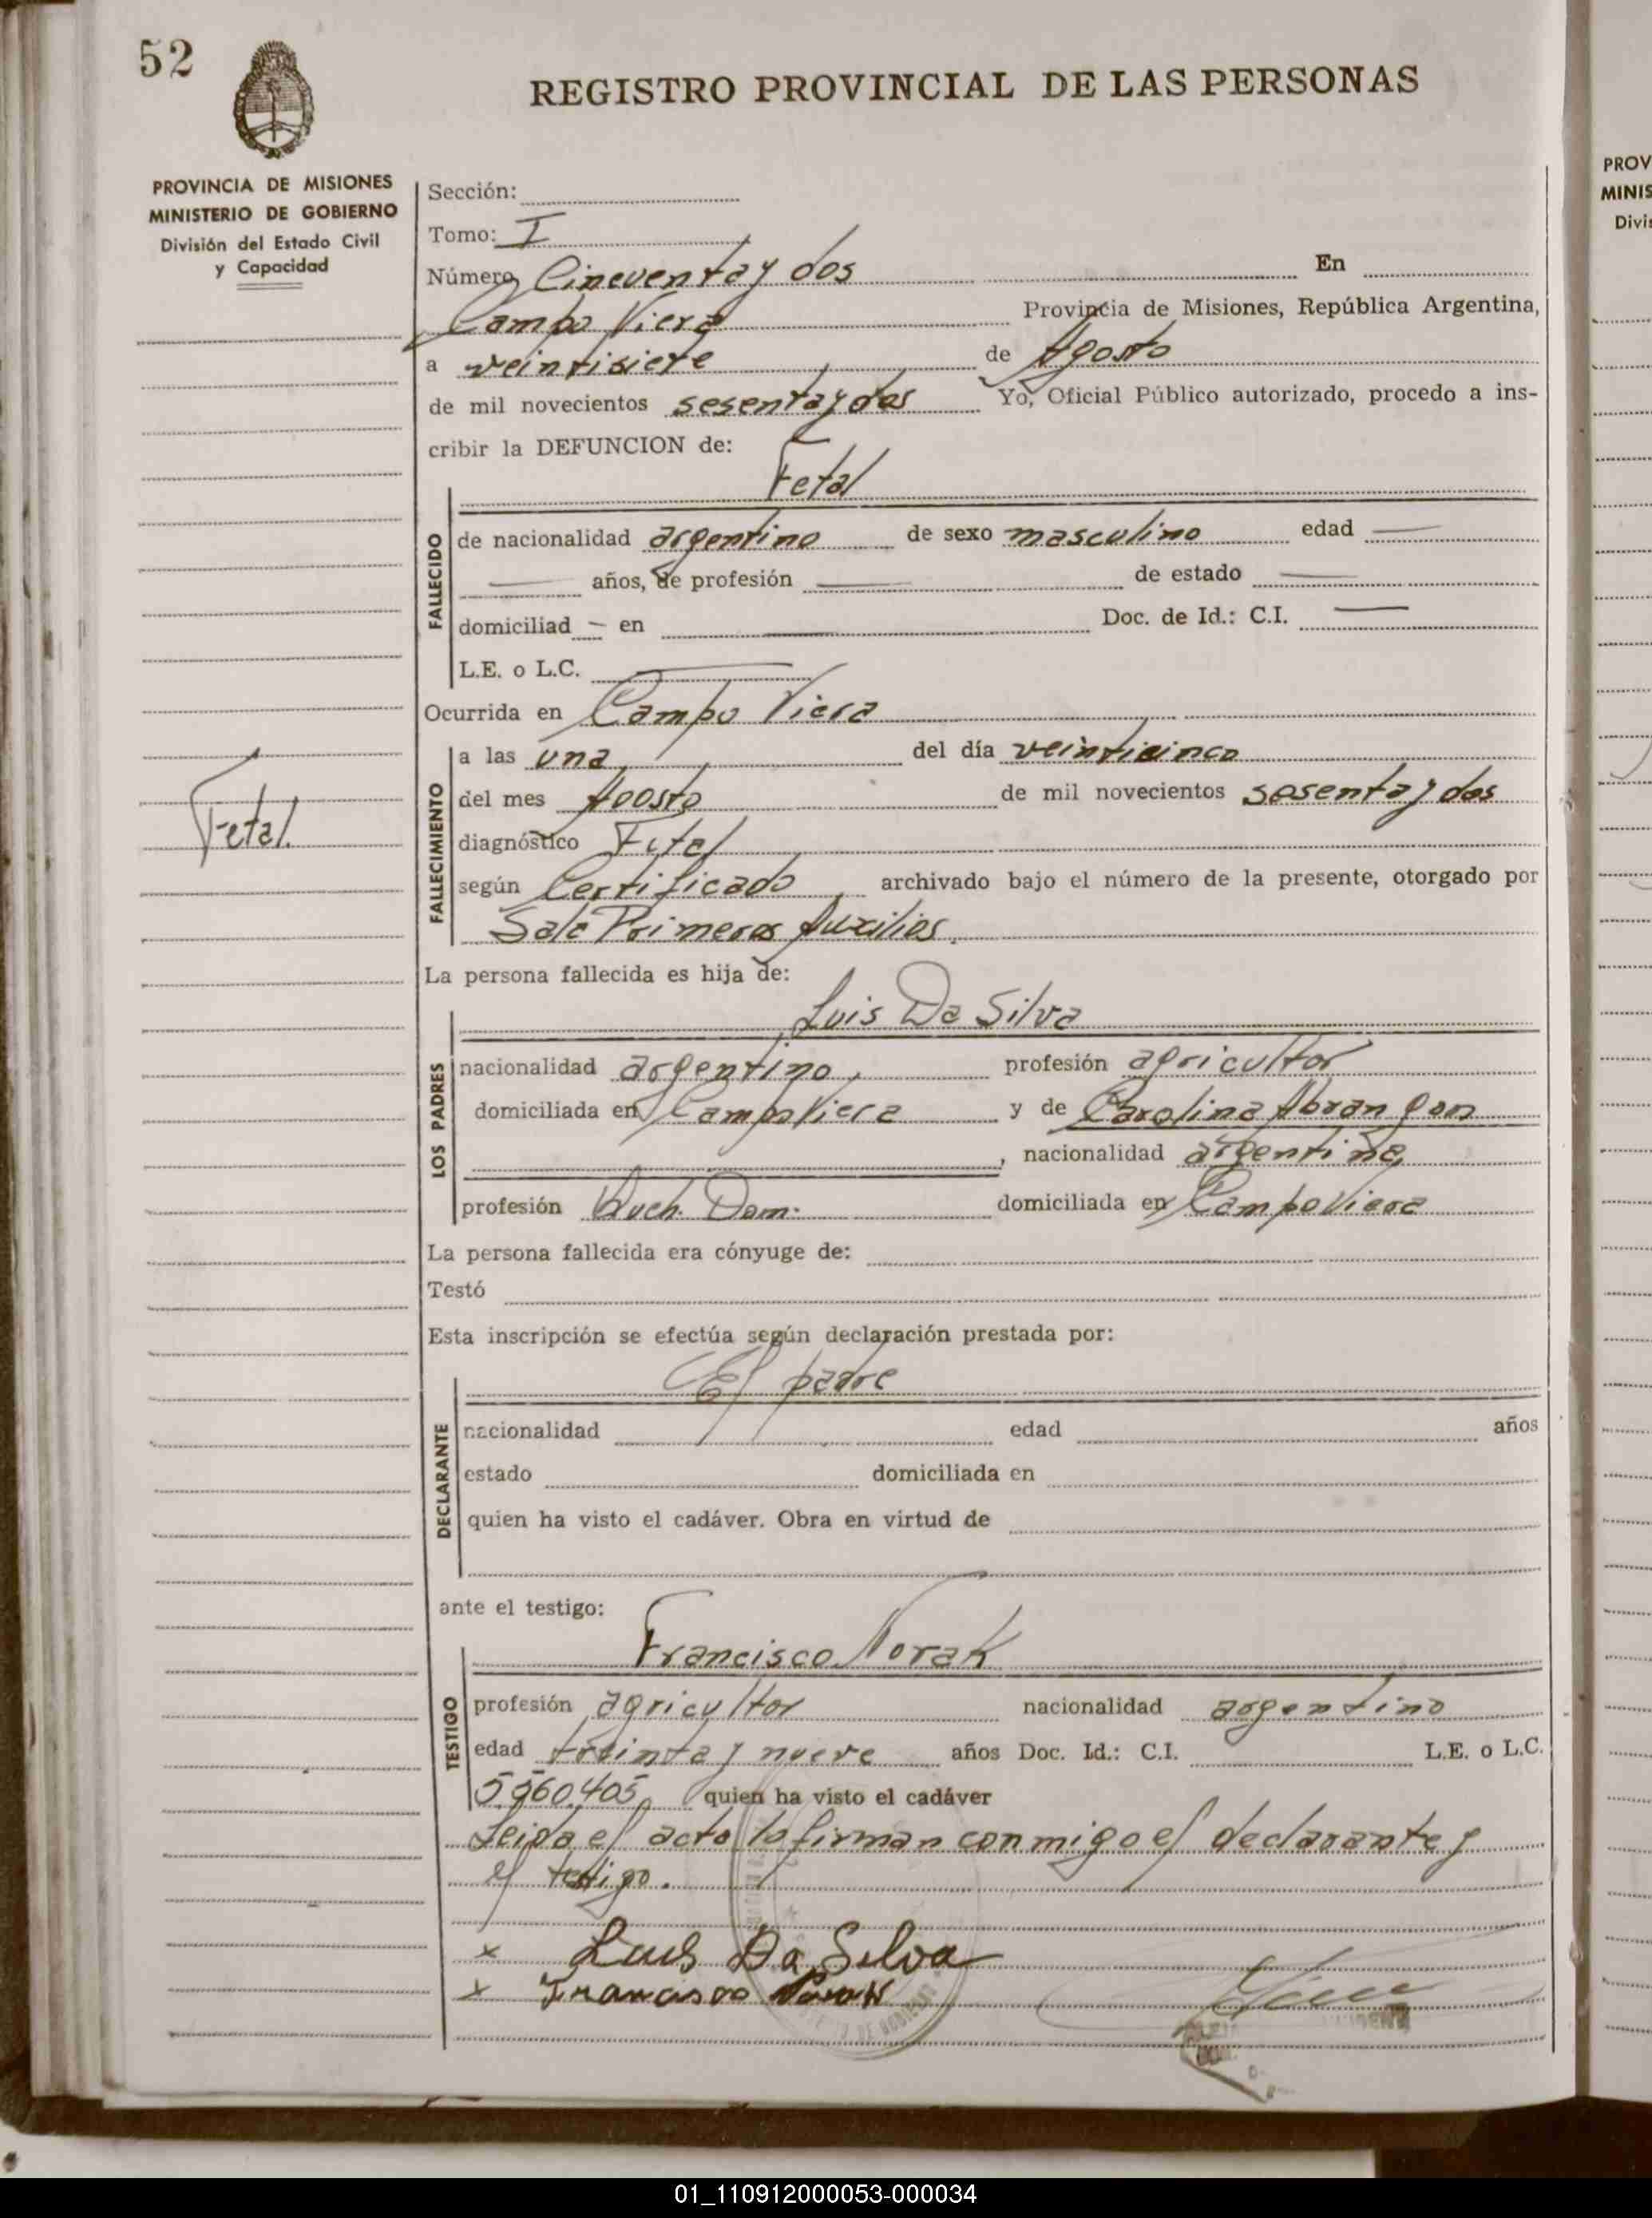 52
REGISTRO PROVINCIAL DE LAS PERSONAS
PROVINCIA DE MISIONES
MINISTERIO DE GOBIERNO
División del Estado Civil
y Capacidad
Sección:
Tomo: I
Número Cincuenta y dos En
Campo Viera Provincia de Misiones, República Argentina,
a veintisiete de Agosto
de mil novecientos sesenta y dos Yo, Oficial Público autorizado, procedo a ins-
cribir la DEFUNCION de:
Fetal
FALLECIDO
de nacionalidad argentino de sexo masculino edad —
— años, de profesión — de estado —
domiciliad — en — Doc. de Id.: C.I. —
L.E. o L.C. —
Ocurrida en Campo Viera
FALLECIMIENTO
a las una del día veinticinco
del mes Agosto de mil novecientos sesenta y dos
diagnóstico Fetal
Fetal.
según Certificado archivado bajo el número de la presente, otorgado por
Sala Primeros Auxilios.
La persona fallecida es hija de:
Luis Da Silva
LOS PADRES
nacionalidad argentino, profesión agricultor
domiciliada en Campo Viera y de Carolina
, nacionalidad argentina,
profesión Queh. Dom. domiciliada en Campo Viera
La persona fallecida era cónyuge de:
Testó
Esta inscripción se efectúa según declaración prestada por:
El padre
DECLARANTE
nacionalidad edad años
estado domiciliada en
quien ha visto el cadáver. Obra en virtud de
ante el testigo:
Francisco Novak
TESTIGO
profesión agricultor nacionalidad argentino
edad treinta y nueve años Doc. Id.: C.I. L.E. o L.C.
quien ha visto el cadáver
Leida el acta la firman conmigo el declarante y
el testigo.
x Luis Da Silva
x Francisco Novak
PROV
MINIS
Divis
01_110912000053-000034